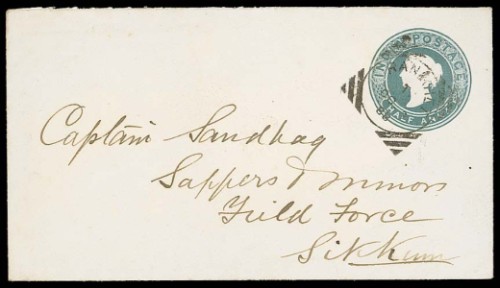 INDIA POSTAGE
HALF ANNA
Captain Sandbag
Sappers & Minors
Field Force
Sikkim